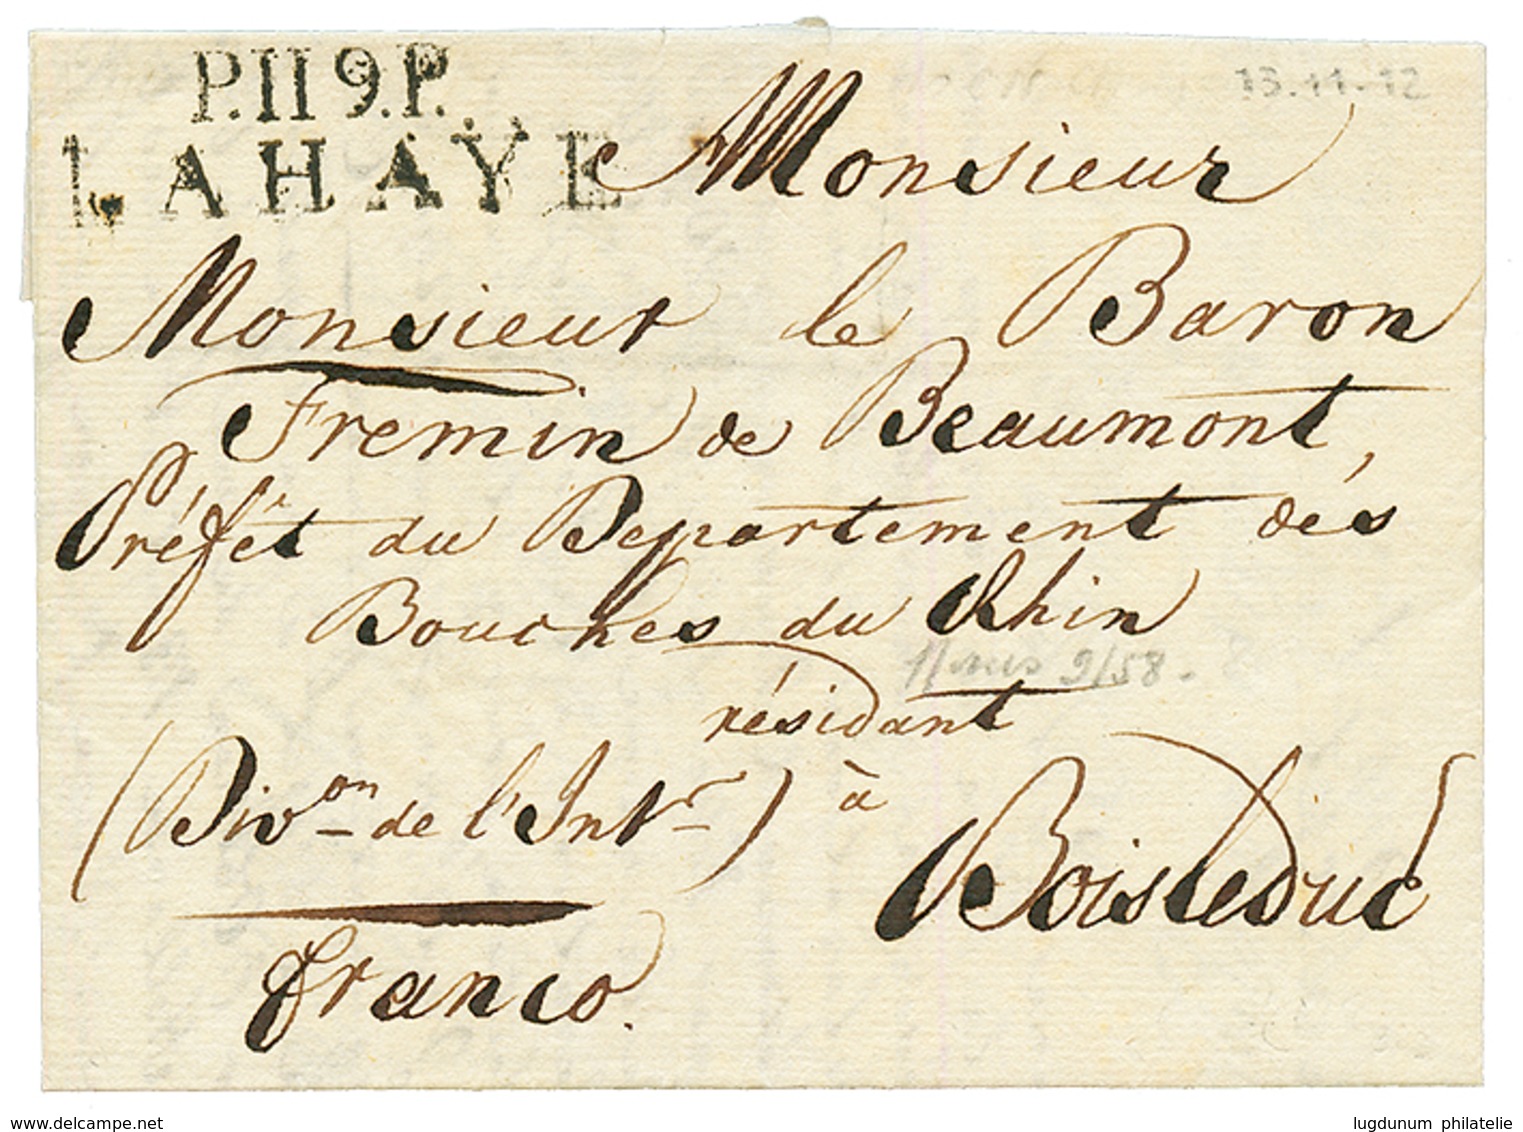 P.119.P.
LAHAYE
13.11.12
Monsieur
Monsieur le Baron
Fremin de Beaumont,
Préfèt du Departement dés
Bouches du Rhin
9/58.
résidant
(Divon de l'Intr) à
Boisleduc
franco.
delcampe.net
lugdunum philatelie